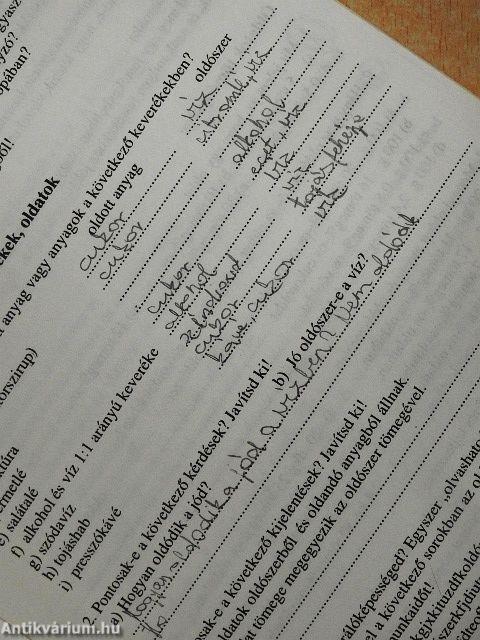 yző?
opában?
ből!
ekek, oldatok
anyag vagy anyagok a következő keverékekben?
oldott anyag oldószer
cukor víz
cukor citromlé, víz
alkohol
cukor ecet, víz
alkohol víz
széndioxid víz
cukor tojásfehérje
kávé, cukor víz
korszirup)
ktúra
ermellé
e) salátalé
f) alkohol és víz 1:1 arányú keveréke
g) szódavíz
h) tojáshab
i) presszókávé
2. Pontosak-e a következő kérdések? Javítsd ki!
Hogyan oldódik a jód? b) Jó oldószer-e a víz?
Hogyan oldódik a jód a vízben? Nem oldódik
osak-e a következő kijelentések? Javítsd ki!
ldatok oldószerből és oldandó anyagból állnak
at tömege megegyezik az oldószer tömegével.
atóképességed? Egyszer „olvashato
a következő sorokban az ol
unkaidőt!
Antikvárium.hu